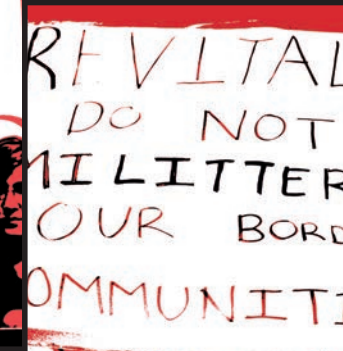 REVITAL
DO NOT
MILITTER
OUR BORD
OMMUNITI